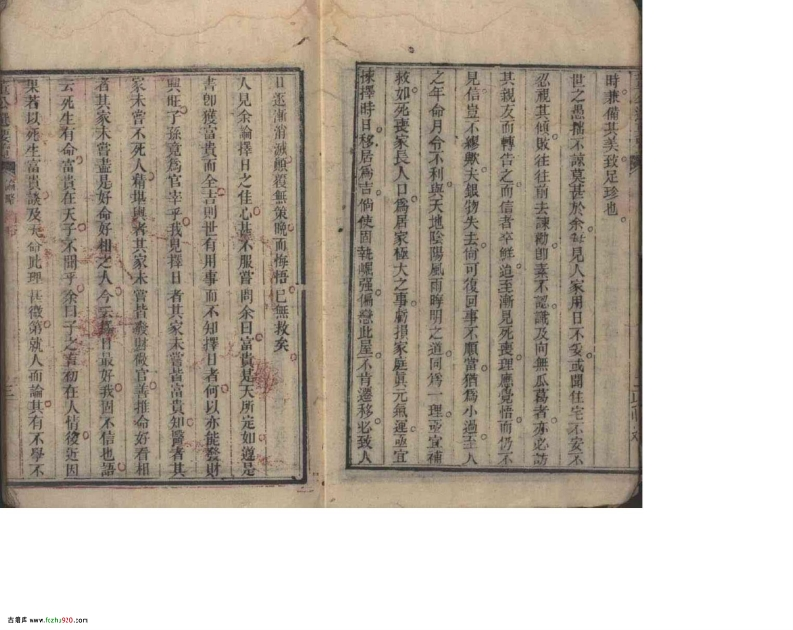 時兼備其美致足珍也
世之愚擕不諒莫甚於余每見人家用日不妥或開住宅不安不
忍視其傾敗往往前去諫勸卽素不認識及向無瓜葛者亦必訪
其親友而轉告之而信者卒鮮迨至漸見死喪理應覺悟而仍不
見信豈不繆歟夫銀物失去尚可復回事不順當猶爲小過至人
之年命月分不利與天地陰陽風雨晦明之道同爲一理亟宜補
救如死喪家長人口爲居家極大之事虧損家庭眞元氣運亟宜
揀擇時日移居爲吉倘使固執崛强偏戀此屋不肯遷移必致人
日逐漸消滅顛殺無策晩而悔悟已無救矣
人見余論擇日之佳心甚不服嘗問余曰富貴是天所定如遵是
書卽獲富貴而全吉則世有用事而不知擇日者何以亦能發財
興旺子孫竟爲官宰乎我見擇日者其家未嘗皆富貴知醫者其
家未嘗不死人精堪輿者其家未嘗皆發財發官善推命好看相
者其家未嘗盡是好命好相之人今云擇日最好我固不信也語
云死生有命富貴在天子不聞乎余曰子之言切在人情後近因
果若以死生富貴談及天命此理甚微第就人而論其有不學不
古籍庫 www.fozhu920.com